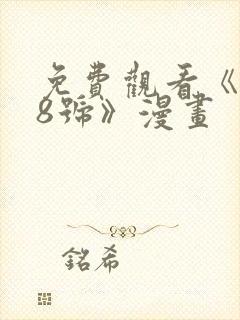 免費觀看《
8號》漫畫
銘希